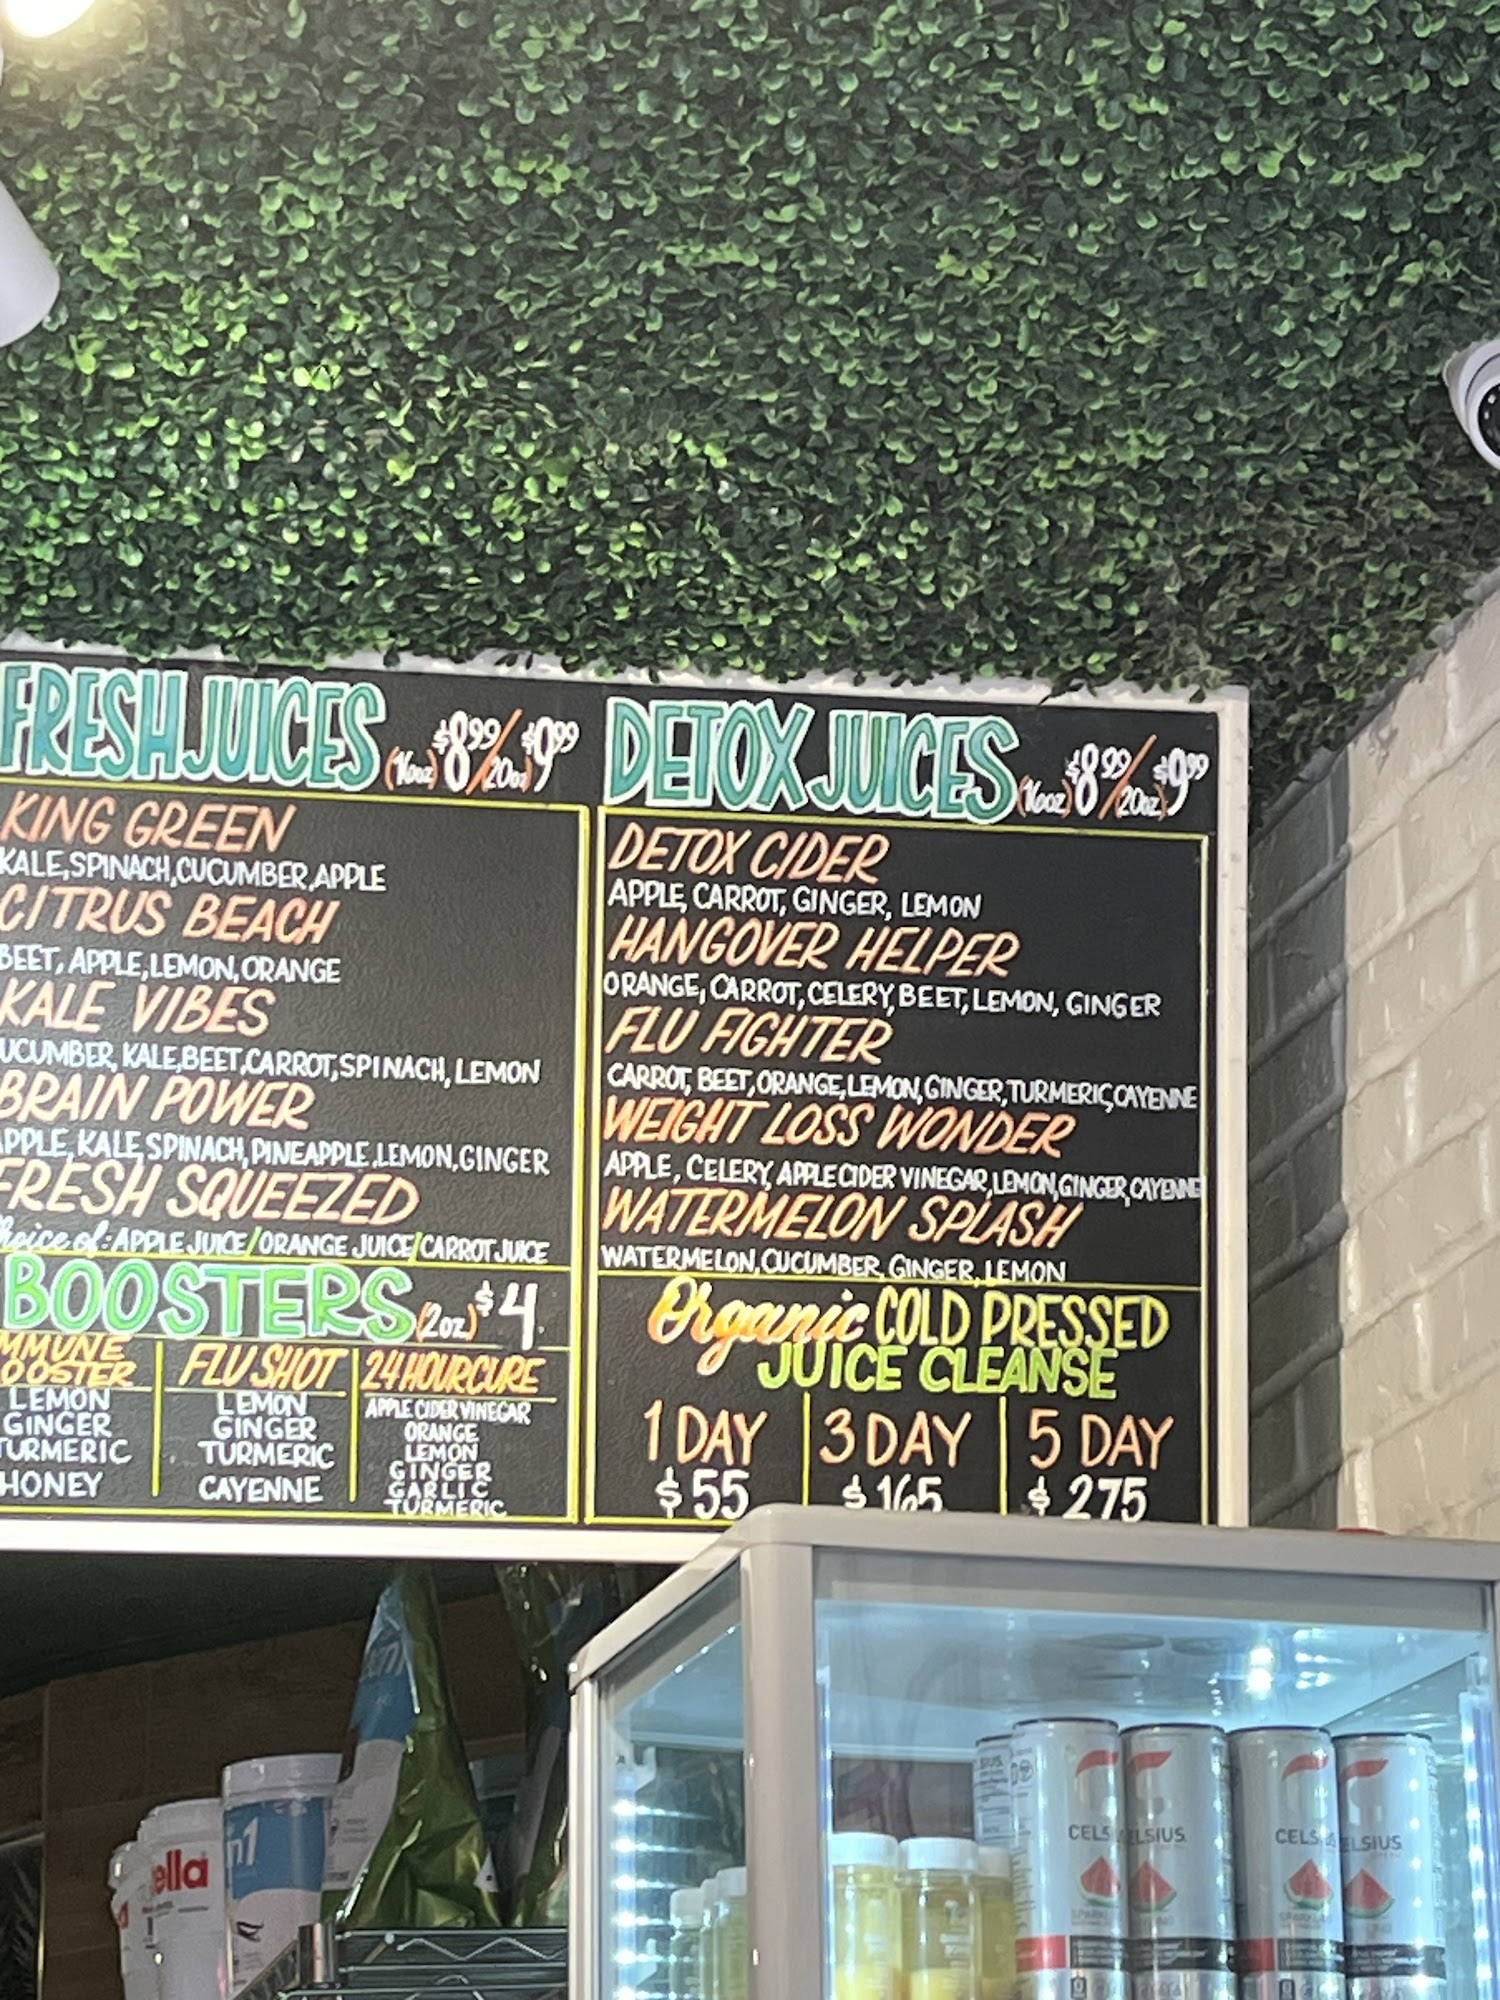 FRESH JUICES (16oz) $8.99/(20oz) $9.99
KING GREEN
KALE, SPINACH, CUCUMBER, APPLE
CITRUS BEACH
BEET, APPLE, LEMON, ORANGE
KALE VIBES
UCUMBER, KALE, BEET, CARROT, SPINACH, LEMON
BRAIN POWER
APPLE, KALE, SPINACH, PINEAPPLE, LEMON, GINGER
FRESH SQUEEZED
hoice of: APPLE JUICE/ORANGE JUICE/CARROT JUICE
BOOSTERS (2oz) $4
MMUNE
OOSTER
LEMON
GINGER
TURMERIC
HONEY
FLU SHOT
LEMON
GINGER
TURMERIC
CAYENNE
24 HOUR CURE
APPLE CIDER VINEGAR
ORANGE
LEMON
GINGER
GARLIC
TURMERIC
DETOX JUICES (16oz) $8.99/(20oz) $9.99
DETOX CIDER
APPLE, CARROT, GINGER, LEMON
HANGOVER HELPER
ORANGE, CARROT, CELERY, BEET, LEMON, GINGER
FLU FIGHTER
CARROT, BEET, ORANGE, LEMON, GINGER, TURMERIC, CAYENNE
WEIGHT LOSS WONDER
APPLE, CELERY, APPLE CIDER VINEGAR, LEMON, GINGER, CAYENNE
WATERMELON SPLASH
WATERMELON, CUCUMBER, GINGER, LEMON
Organic COLD PRESSED
JUICE CLEANSE
1 DAY
$55
3 DAY
$165
5 DAY
$275
ella
n1
CELS
ELSIUS
CELS
ELSIUS